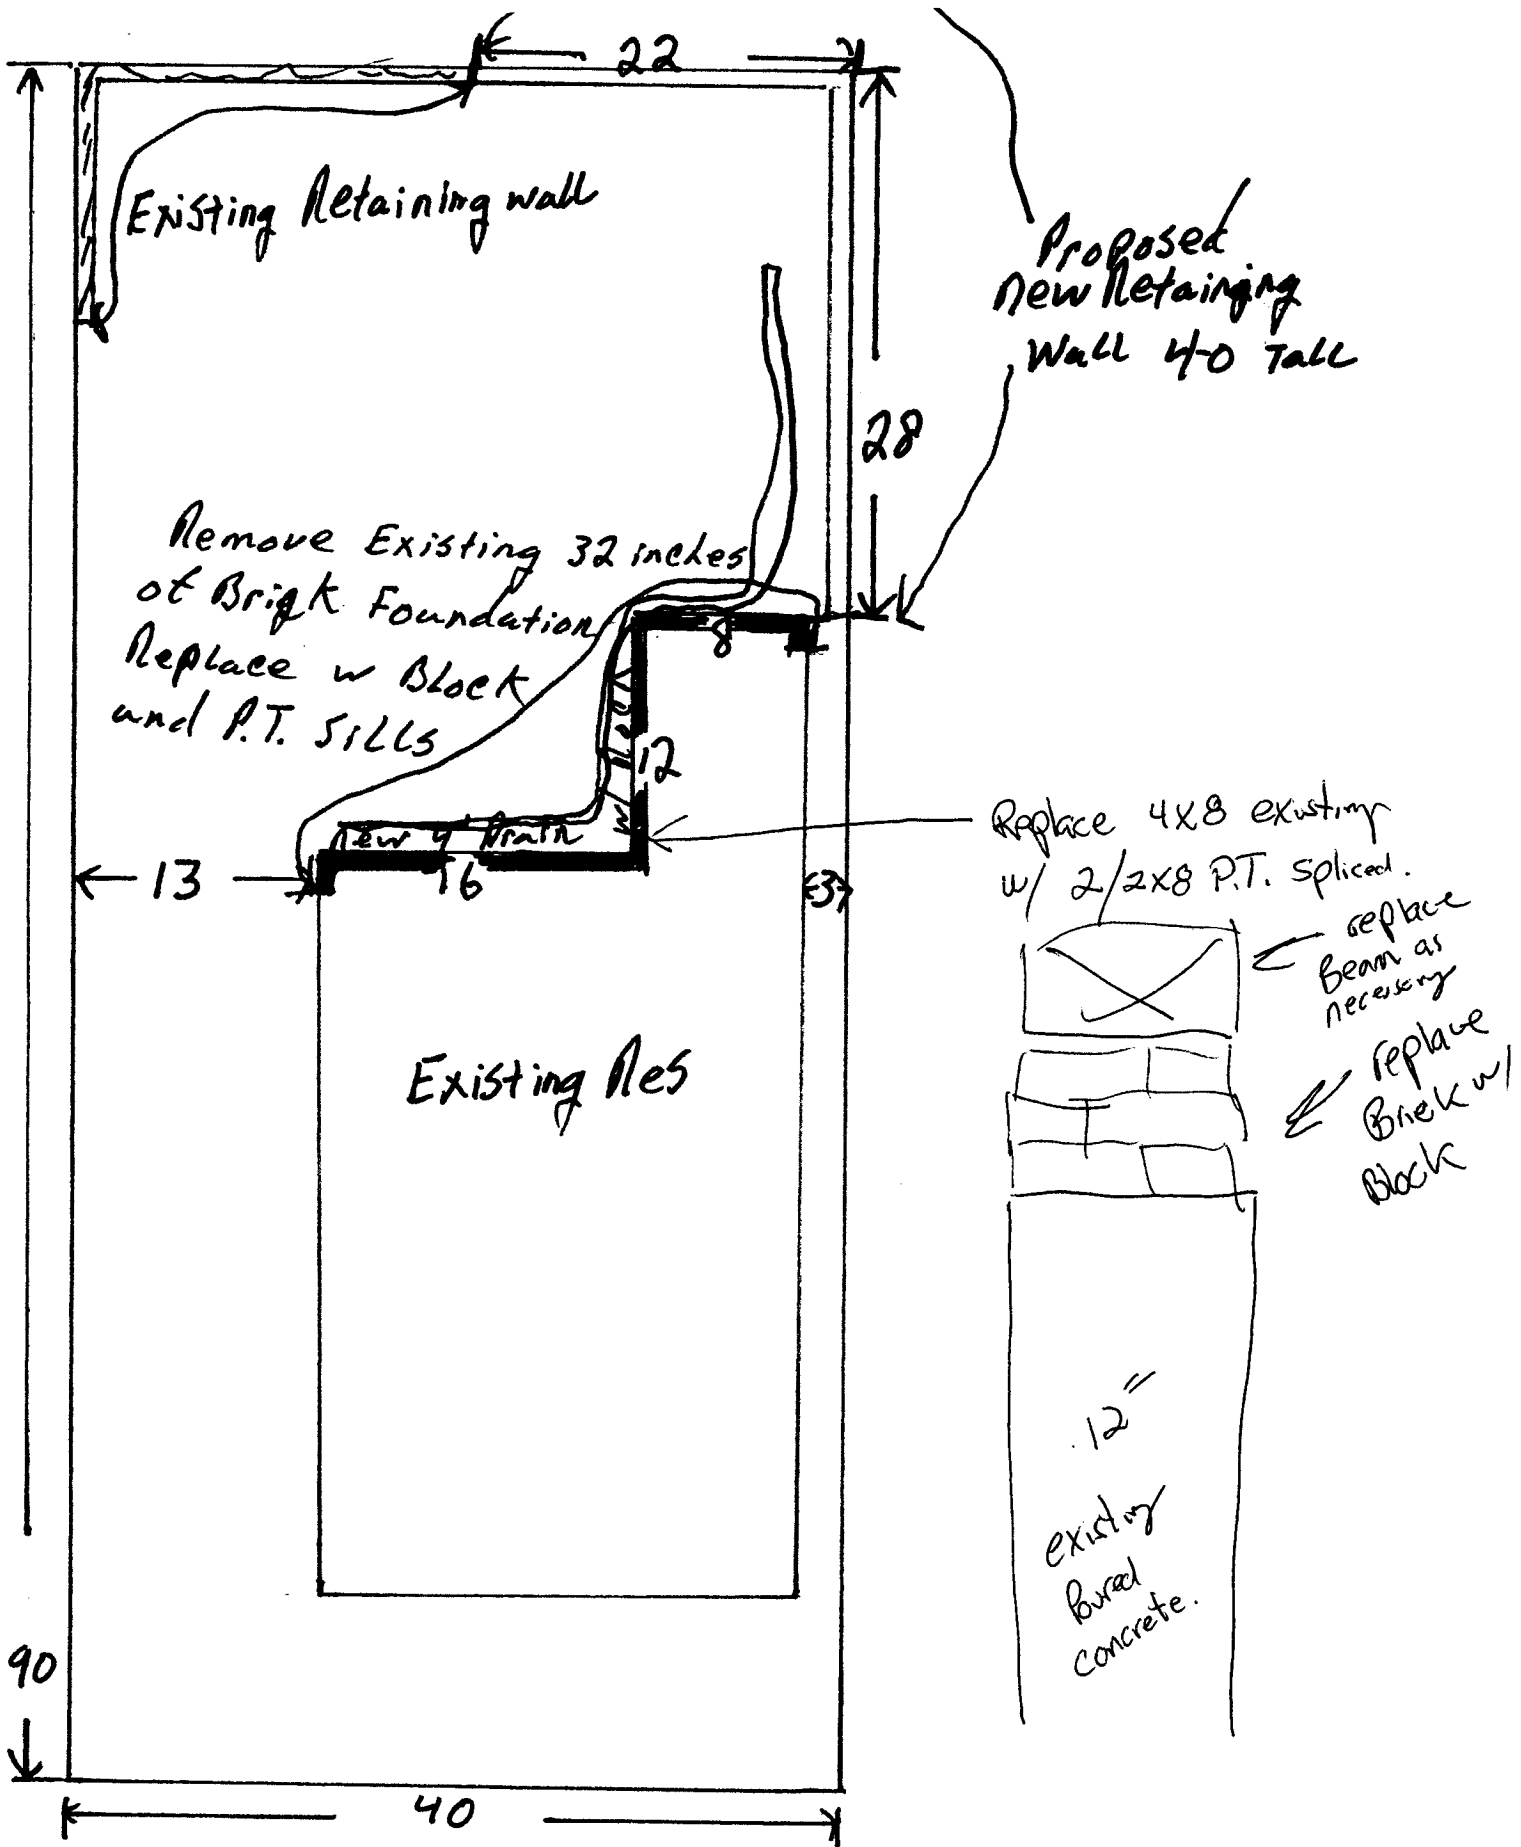 22
Existing Retaining wall
Proposed
New Retainging
Wall 4-0 Tall
28
Remove Existing 32 inches
of Brick Foundation
Replace w Block
and P.T. Sills
8
12
w/
New 4" Drain
13
16
3
Replace 4x8 existing
w/ 2/2x8 P.T. spliced.
replace
Beam as
necessary
replace
Brick w/
Block
Existing Res
12"
existing
Poured
concrete.
90
40